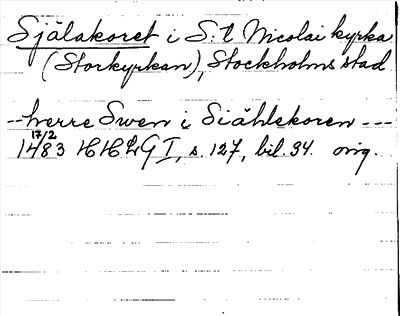 Själakoret i S:t Nicolai kyrka
(Storkyrkan), Stockholms stad
-- herre Swen i Siählekoren ---
17/2
1483 HHLG I, s. 127, bil. 94. orig.